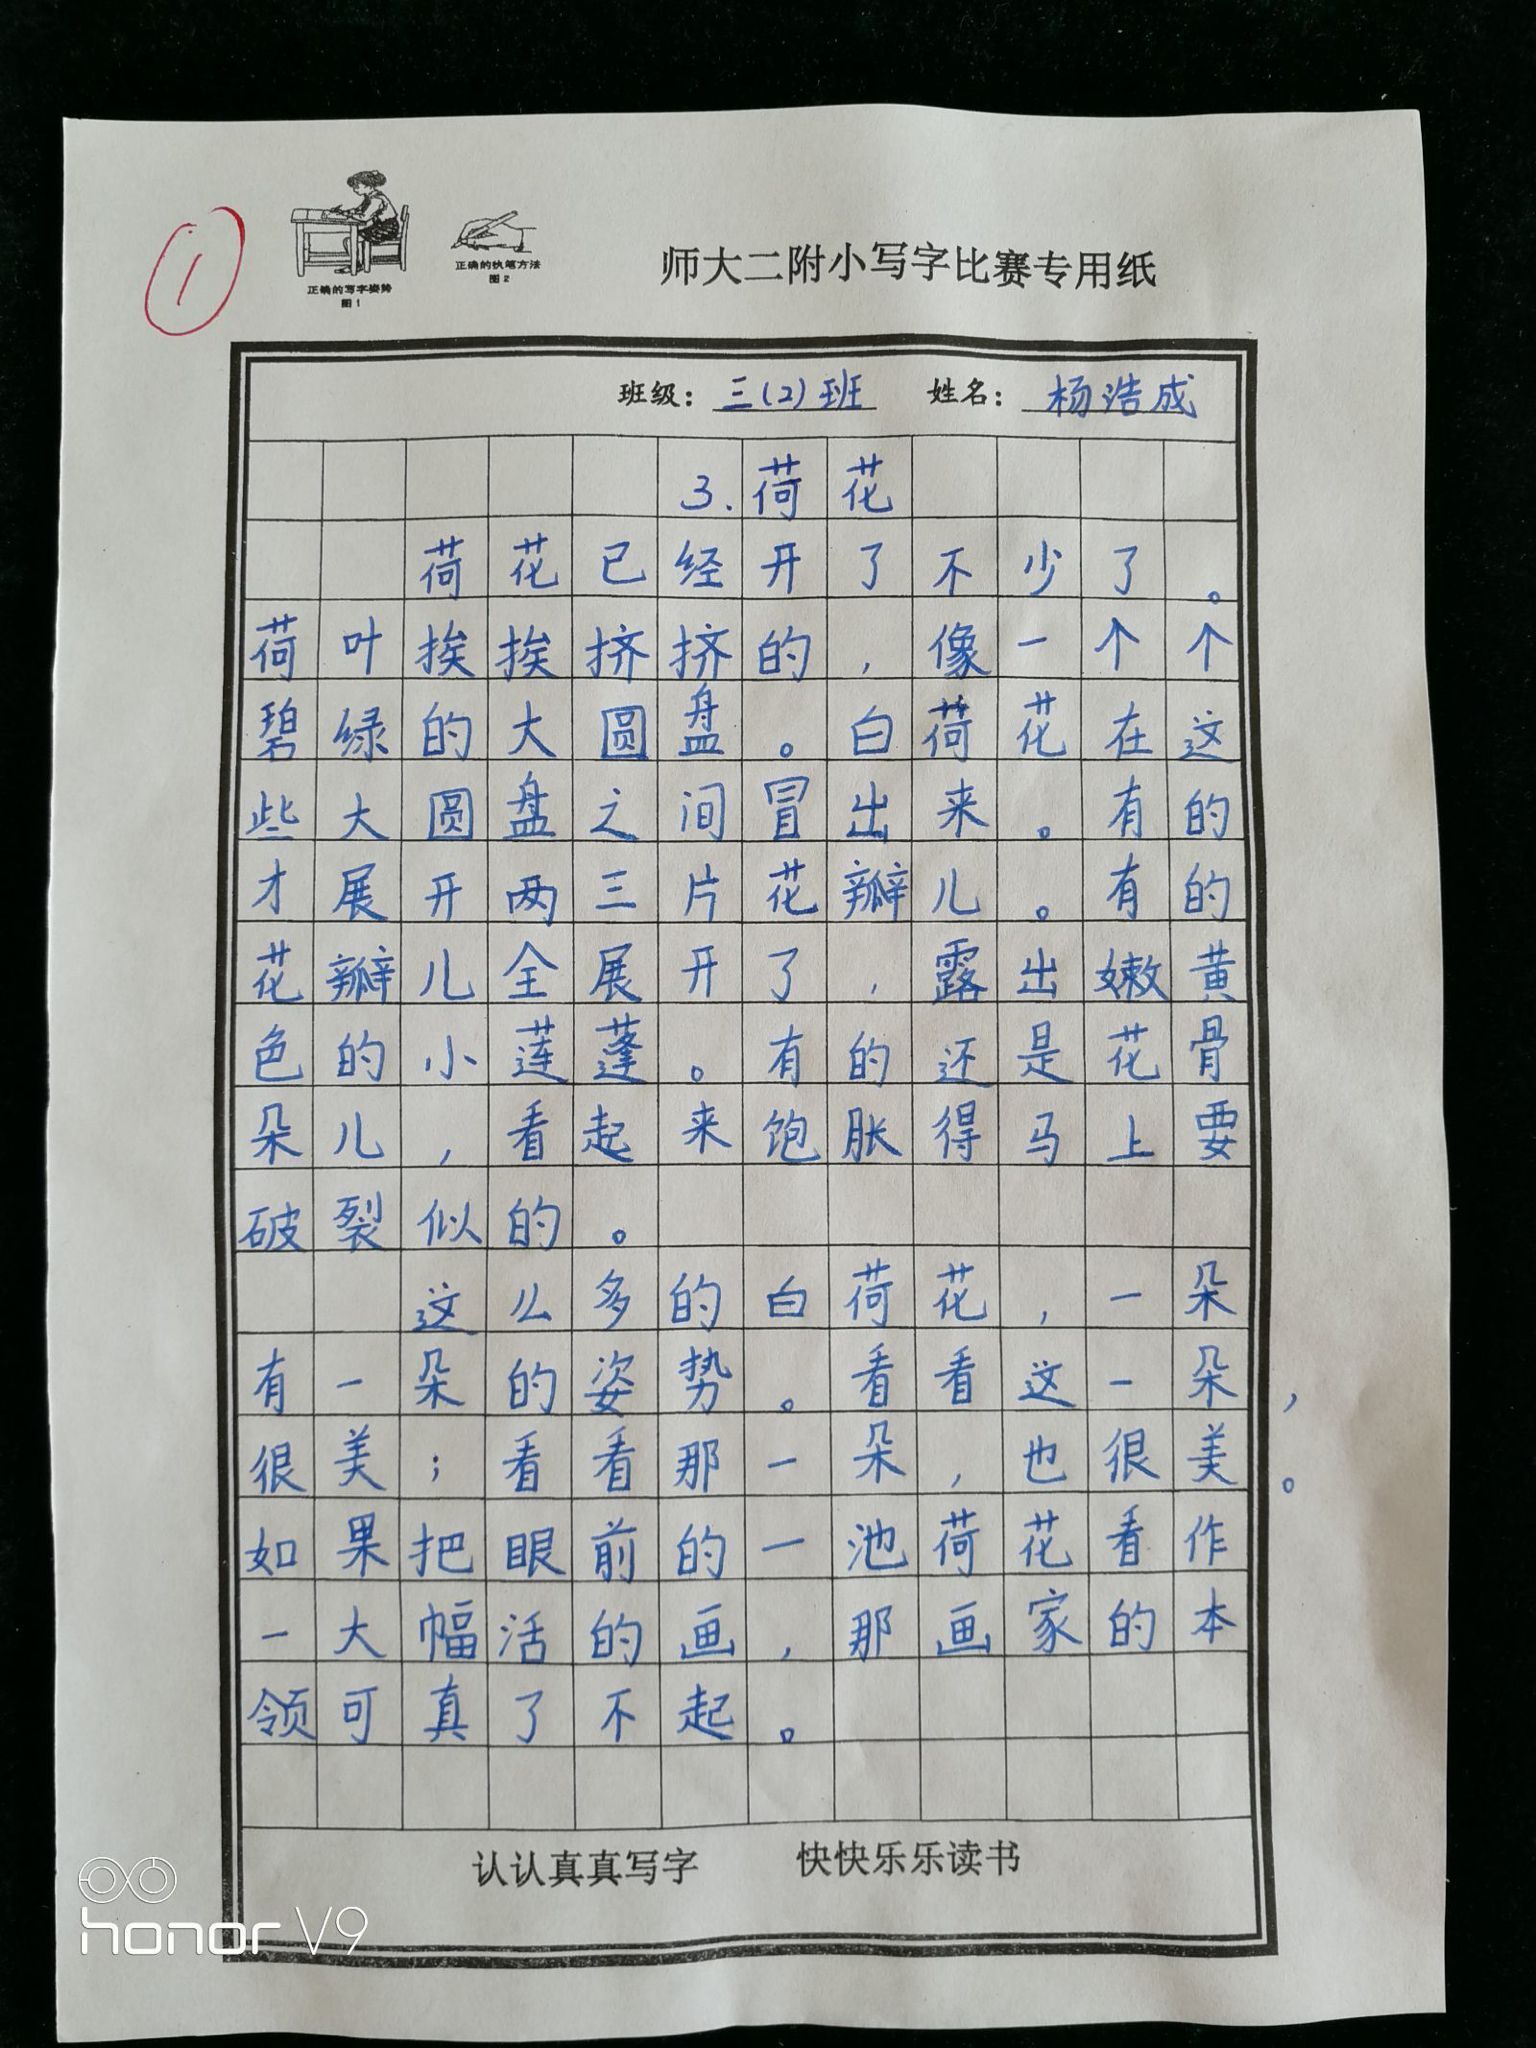 1
正确的写字姿势
图1
正确的执笔方法
图2
师大二附小写字比赛专用纸
班级：三(2)班 姓名：杨浩成
3.荷花
荷花已经开了不少了。
荷叶挨挨挤挤的，像一个个
碧绿的大圆盘。白荷花在这
些大圆盘之间冒出来。有的
才展开两三片花瓣儿。有的
花瓣儿全展开了，露出嫩黄
色的小莲蓬。有的还是花骨
朵儿，看起来饱胀得马上要
破裂似的。
这么多的白荷花，一朵
有一朵的姿势。看看这一朵，
很美；看看那一朵，也很美。
如果把眼前的一池荷花看作
一大幅活的画，那画家的本
领可真了不起。
认认真真写字 快快乐乐读书
honor V9